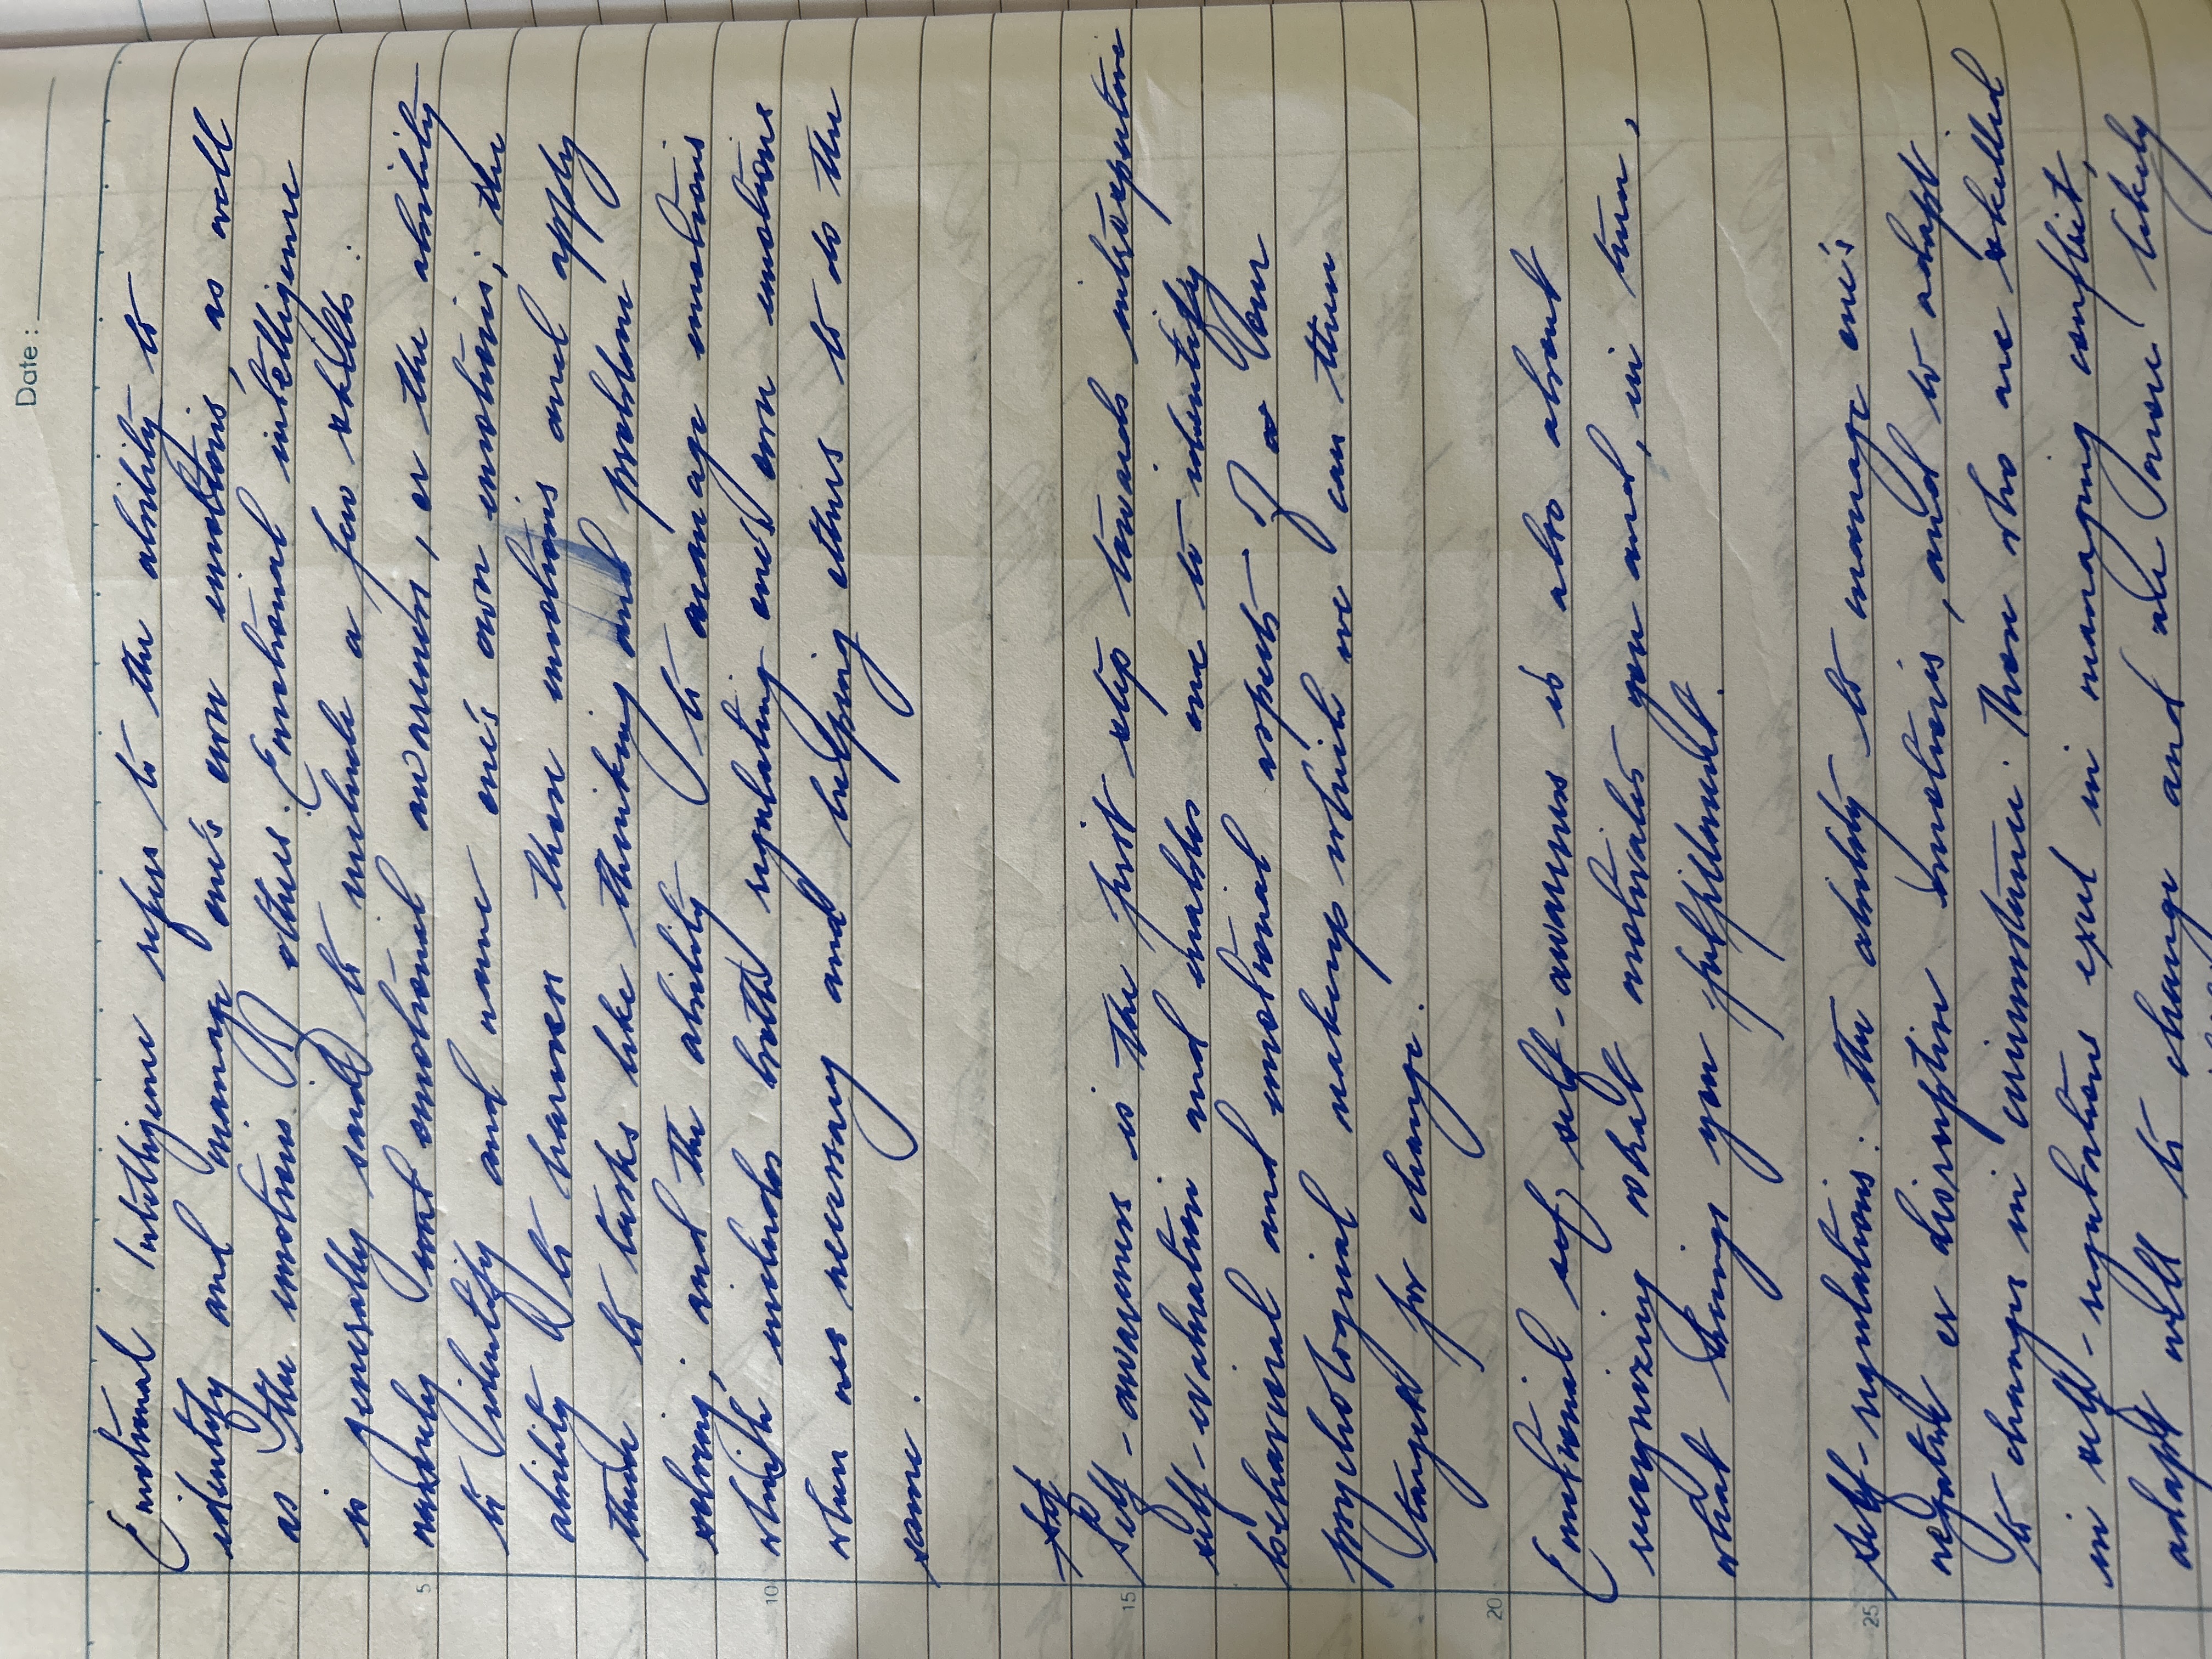 Date :
Emotional Intelligence refers to the ability to
identify and manage one's own emotions, as well
as the emotions of others. Emotional intelligence
is generally said to include a few skills :
5
namely emotional awareness, or the ability
to identify and name one's own emotions; the
ability to harness those emotions and apply
them to tasks like thinking and problem
solving; and the ability to manage emotions
10
which includes both regulating ones own emotions
when necessary and helping others to do the
same.
15
Self-awareness is the first step towards introspective
self-evaluation and enables one to identify
behavioural and emotional aspects of our
psychological makeup which we can then
target for change.
20
Emotional self-awareness is also about
recognizing what motivates you and, in turn,
what brings you fulfillment.
25
Self-regulations: the ability to manage one's
negative or disruptive emotions, and to adapt
to changes in circumstance. Those who are skilled
in self-regulations excel in managing conflict,
adapt well to change and are more likely